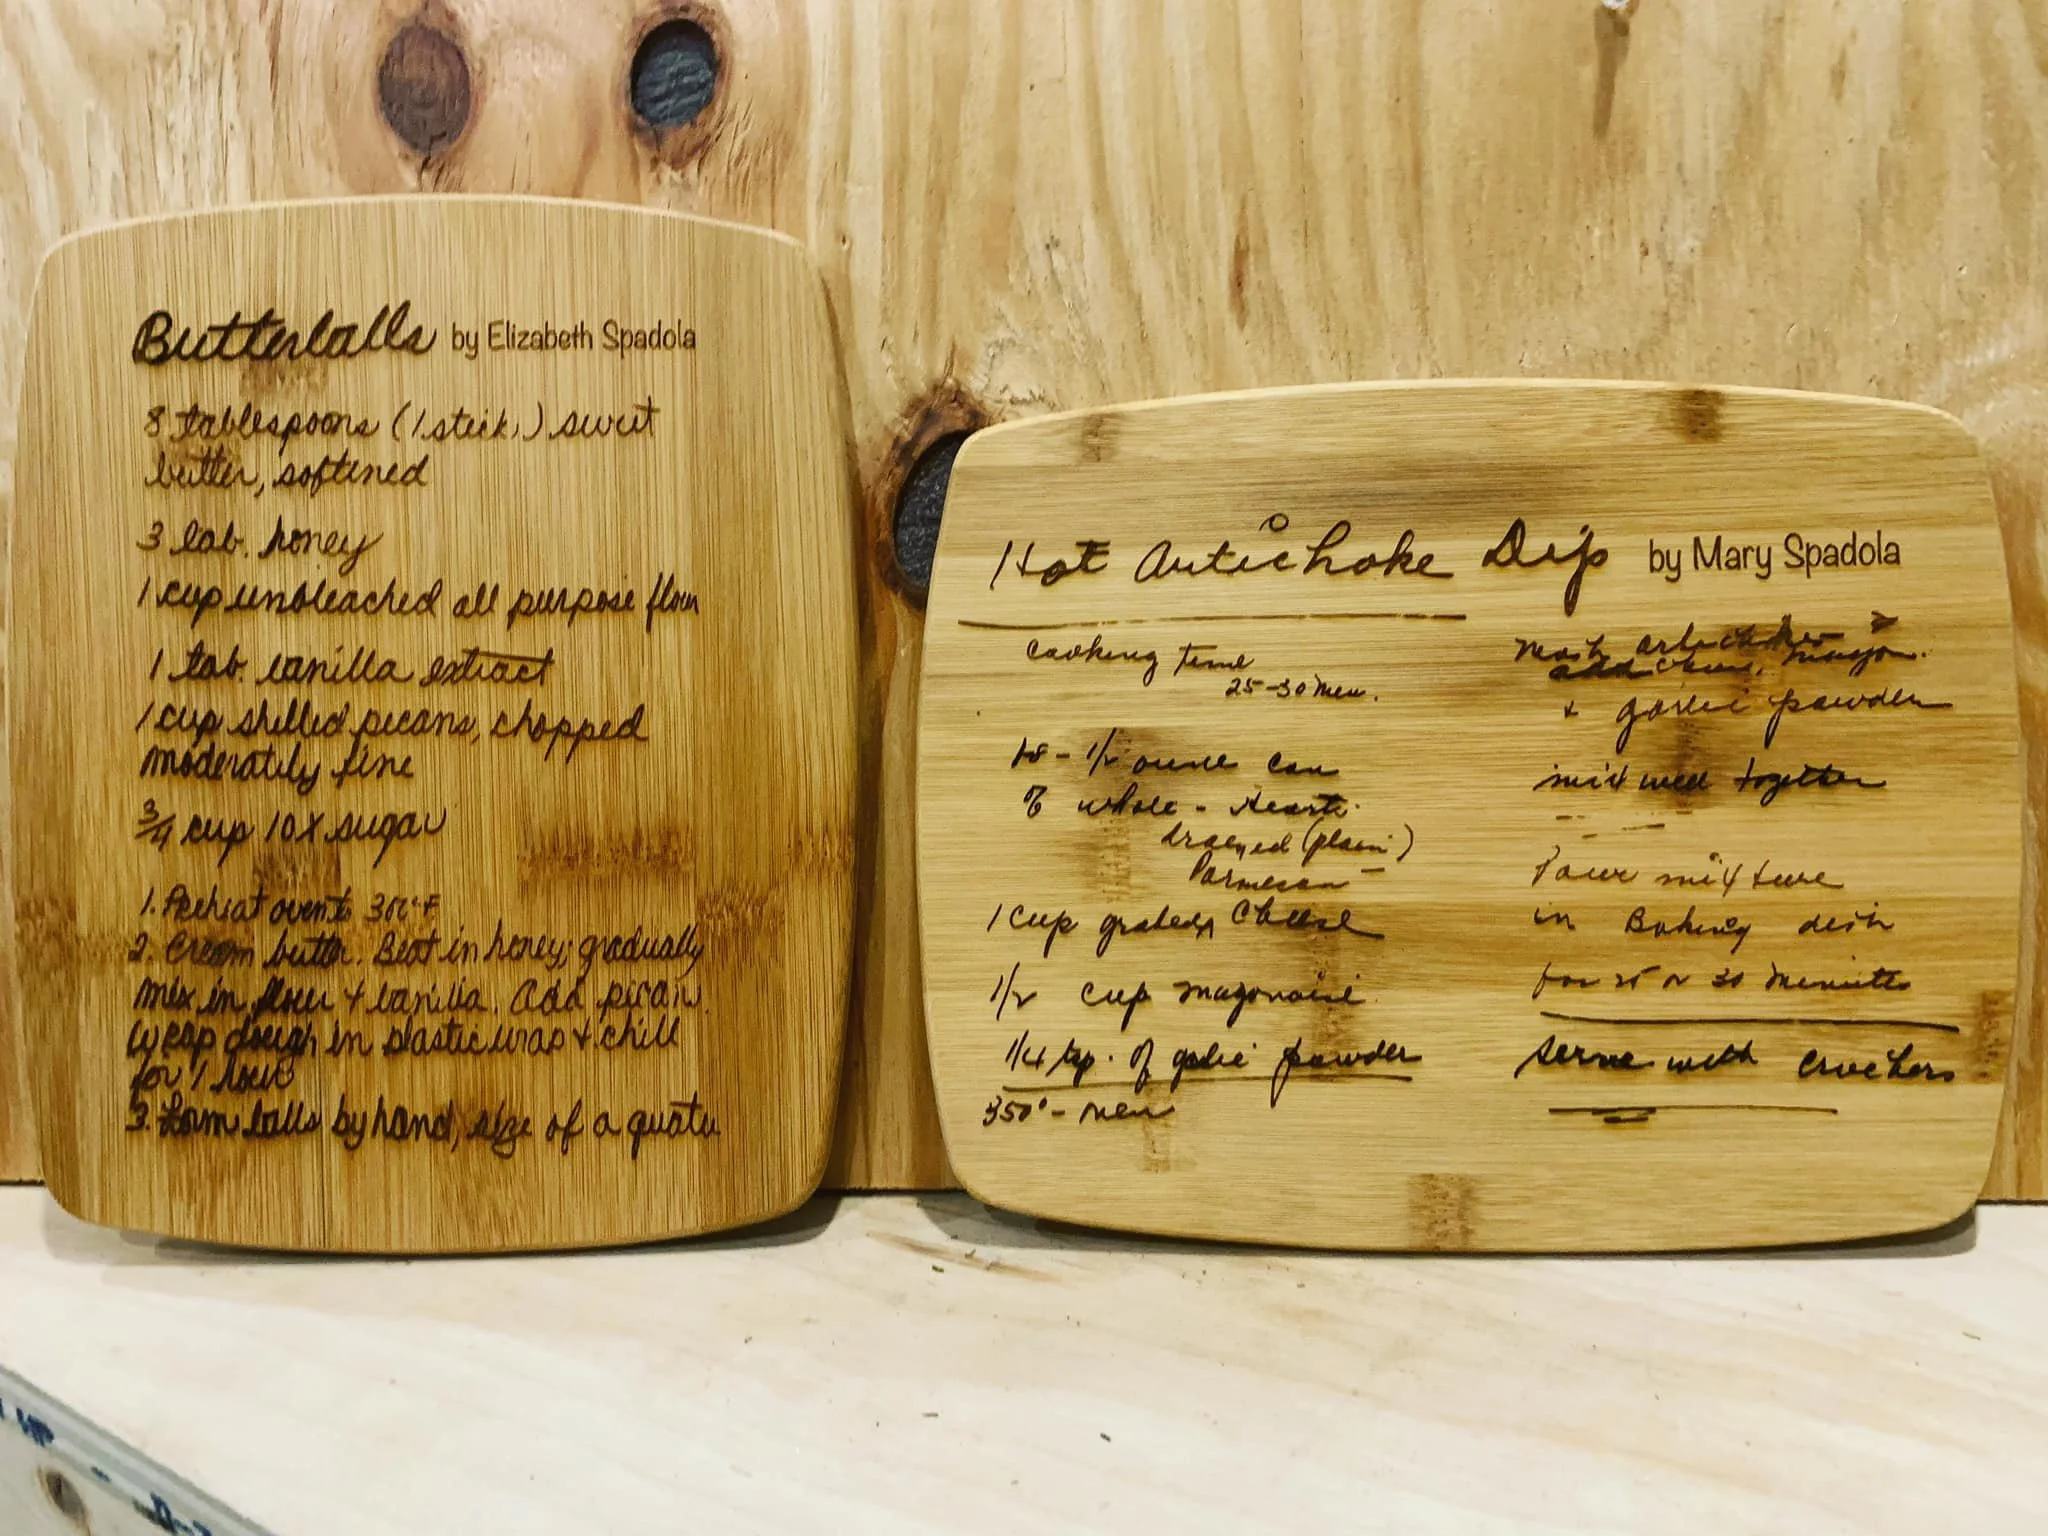 Butterballs by Elizabeth Spadola
8 tablespoons (1 stick) sweet
butter, softened
3 tab. honey
1 cup unbleached all purpose flour
1 tab. vanilla extract
1 cup shelled pecans, chopped
moderately fine
3/4 cup 10X sugar
1. Preheat oven to 300°F
2. Cream butter. Beat in honey; gradually
mix in flour + vanilla. Add pecans.
Wrap dough in plastic wrap + chill
for 1 hour
3. Form balls by hand, size of a quarter
Hot Artichoke Dip by Mary Spadola
Cooking time
25-30 min.
1-8-1/2 ounce can
of whole - Hearts
drained (plain)
Parmesan
1 cup grated Cheese
1/2 cup mayonaise
1/4 tsp. of garlic powder
350° - oven
Mash artichokes
add cheese, mayon.
+ garlic powder
mix well together
Pour mixture
in Baking dish
for 25 or 30 minutes
Serve with crackers